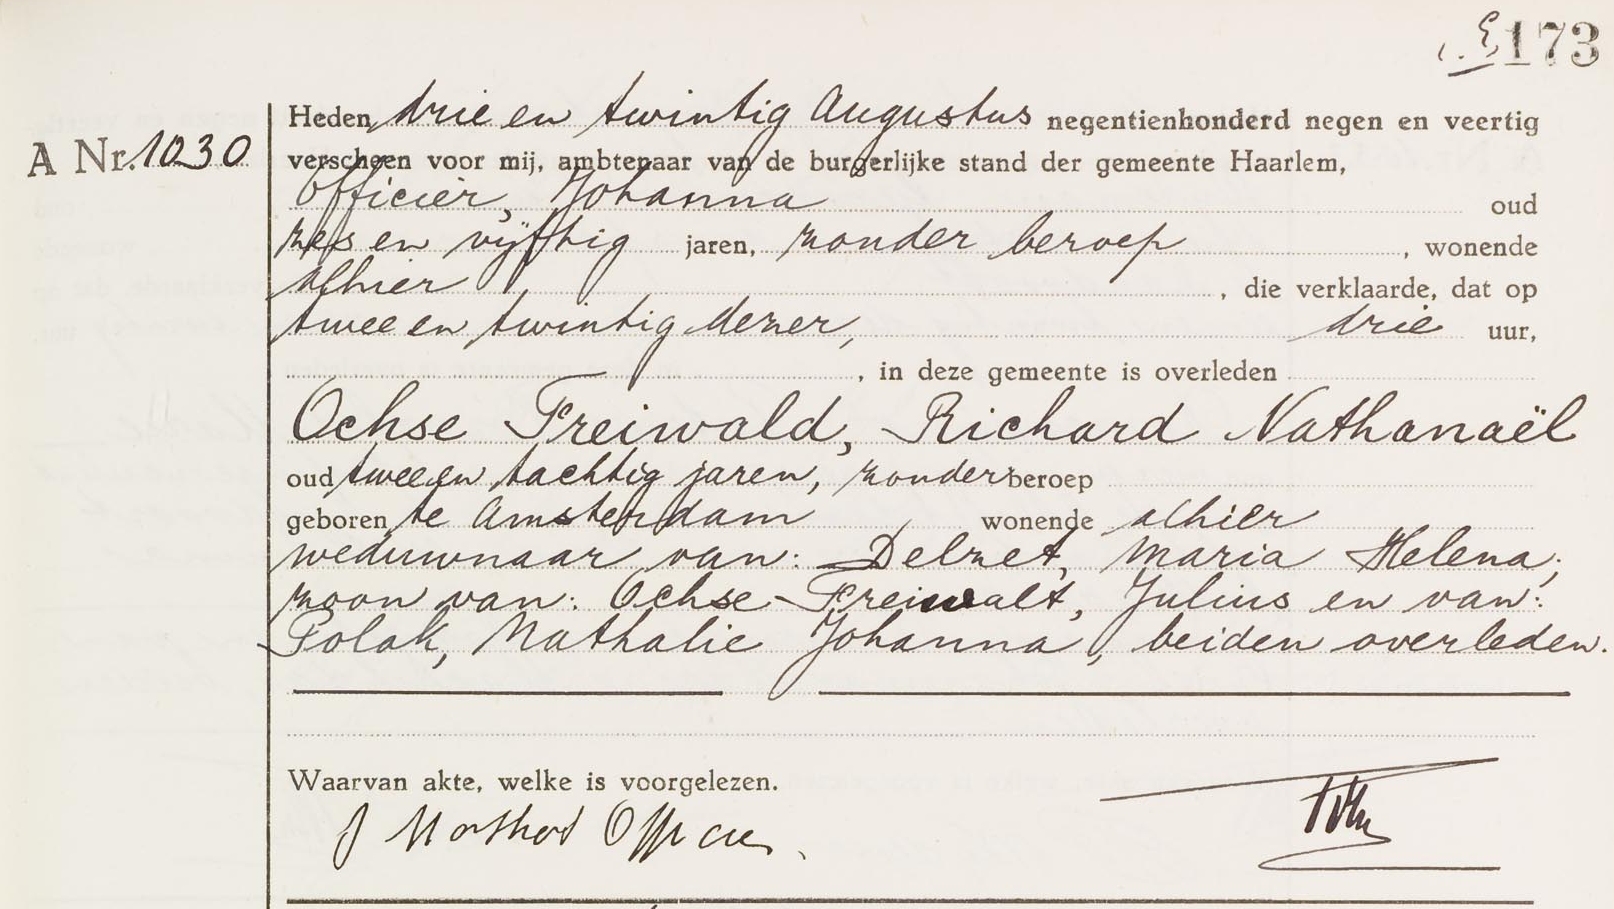 173
A Nr. 1030
Heden drie en twintig Augustus negentienhonderd negen en veertig
verscheen voor mij, ambtenaar van de burgerlijke stand der gemeente Haarlem,
Officier, Johanna oud
zes en vijftig jaren, zonder beroep, wonende
alhier, die verklaarde, dat op
twee en twintig dezer, drie uur,
, in deze gemeente is overleden
Ochse Freiwald, Richard Nathanaël
oud twee en tachtig jaren, zonder beroep
geboren te Amsterdam wonende alhier
weduwnaar van: Delzet, Maria Helena;
zoon van: Ochse-Freiwalt, Julius en van:
Polak, Nathalie Johanna, beiden overleden.
Waarvan akte, welke is voorgelezen.
J Officier